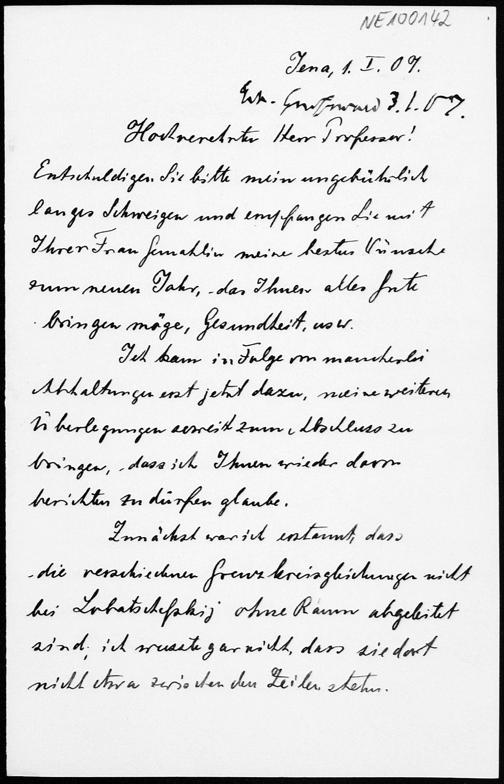 NE100142
Jena, 1. I. 07.
3.I.07.
Hochverehrter Herr Professor!
Entschuldigen Sie bitte mein ungebührlich
langes Schweigen und empfangen Sie mit
Ihrer Frau Gemahlin meine besten Wünsche
zum neuen Jahr, das Ihnen alles Gute
bringen möge, Gesundheit, usw.
Ich kam in Folge von mancherlei
Abhaltungen erst jetzt dazu, meine weiteren
Überlegungen soweit zum Abschluss zu
bringen, dass ich Ihnen wieder davon
berichten zu dürfen glaube.
Zunächst war ich erstaunt, dass
die verschiednen Grenzkreisgleichungen nicht
bei Lobatschefskij ohne Raum abgeleitet
sind; ich wusste gar nicht, dass sie dort
nicht etwa zwischen den Zeilen stehn.